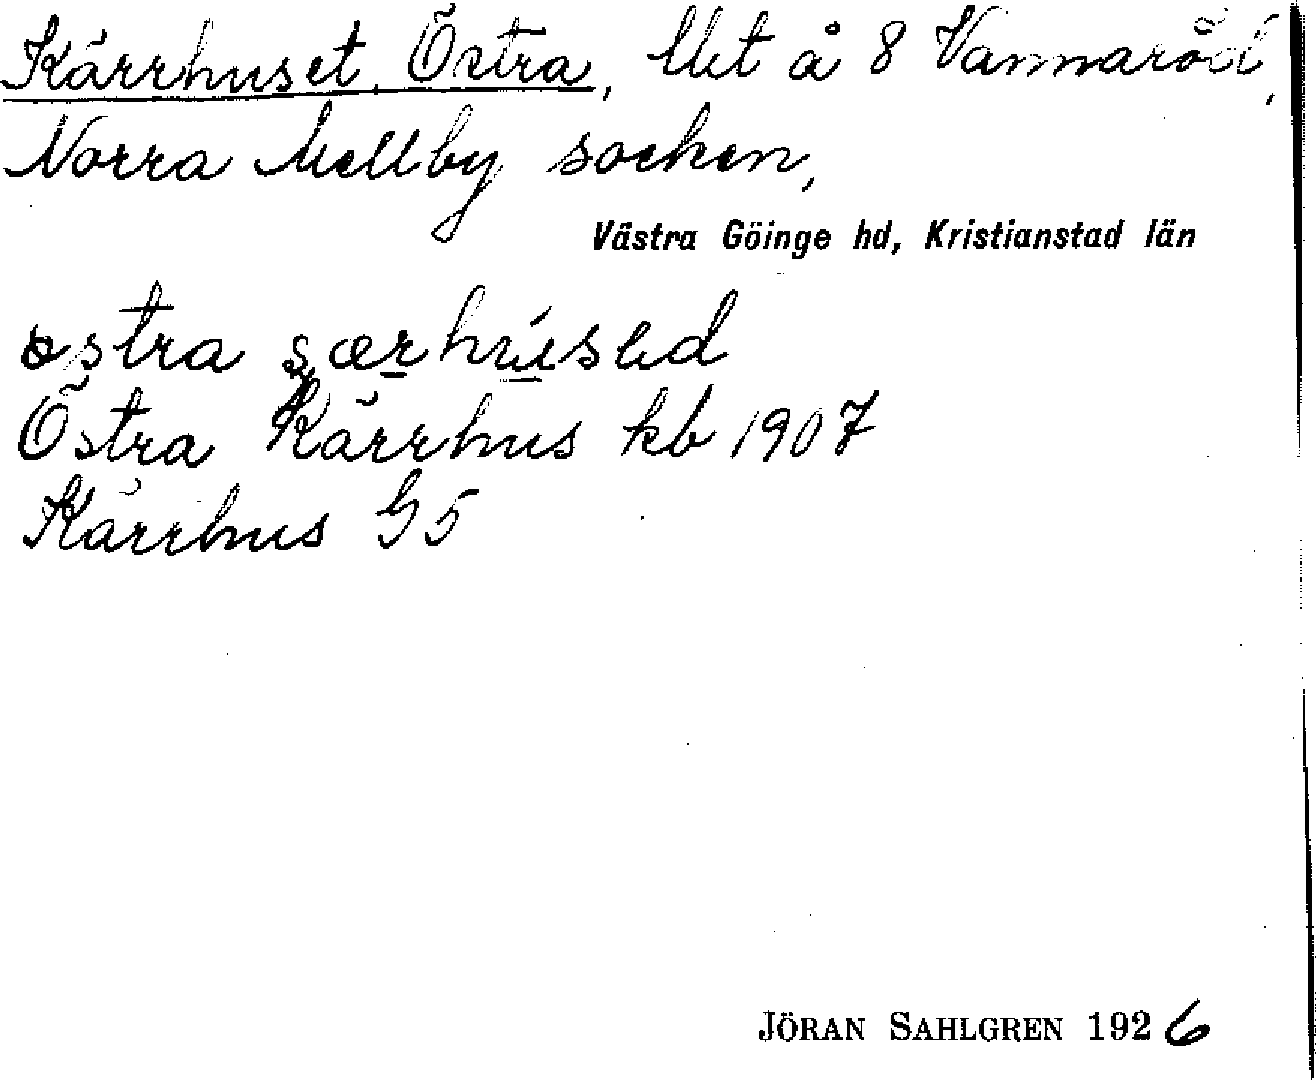 Kärrhuset, Östra, lht å 8 Vannaröd,
Norra Mellby socken,
Västra Göinge hd, Kristianstad län
östra
Östra Kärrhus kb 1907
Kärrhus G5
JÖRAN SAHLGREN 1926